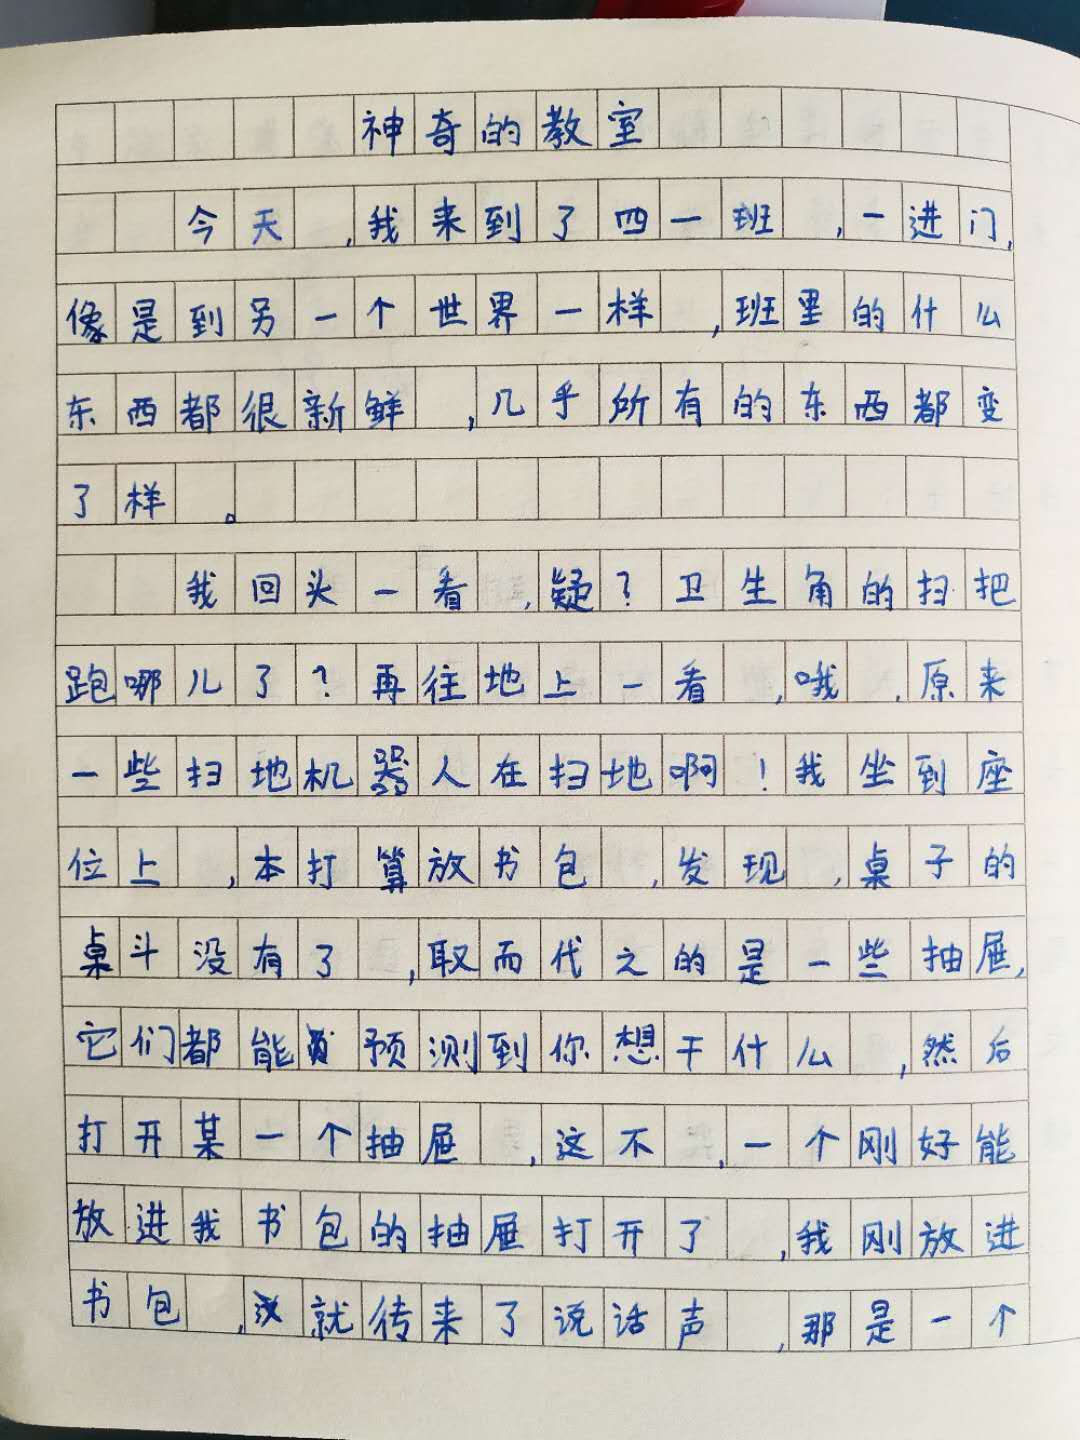 神奇的教室
今天,我来到了四一班,一进门,
像是到另一个世界一样,班里的什么
东西都很新鲜,几乎所有的东西都变
了样。
我回头一看,疑?卫生角的扫把
跑哪儿了?再往地上一看,哦,原来
一些扫地机器人在扫地啊!我坐到座
位上,本打算放书包,发现,桌子的
桌斗没有了,取而代之的是一些抽屉,
它们都能预测到你想干什么,然后
打开某一个抽屉,这不,一个刚好能
放进我书包的抽屉打开了,我刚放进
书包,就传来了说话声,那是一个